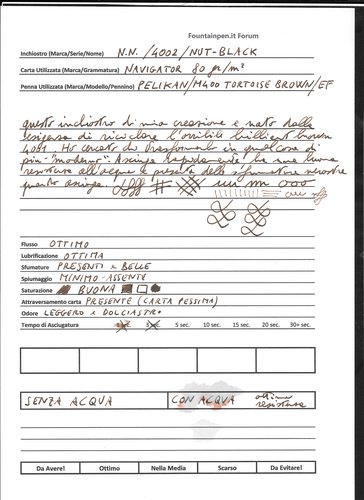 Fountainpen.it Forum
Inchiostro (Marca/Serie/Nome) N.N. /4002/NUT-BLACK
Carta Utilizzata (Marca/Grammatura) NAVIGATOR 80 gr/m²
Penna Utilizzata (Marca/Modello/Pennino) PELIKAN/M400 TORTOISE BROWN/EF
questo inchiostro di mia creazione è nato dalla
esigenza di riciclare l'orribile brilliant brown
4001. Ho cercato di trasformarlo in qualcosa di
più "moderno". Asciuga rapidamente, ha una buona
resistenza all'acqua e presenta delle sfumature nerastre
quando asciuga.
Flusso OTTIMO
Lubrificazione OTTIMA
Sfumature PRESENTI e BELLE
Spiumaggio MINIMO-ASSENTE
Saturazione BUONA
Attraversamento carta PRESENTE (CARTA PESSIMA)
Odore LEGGERO e DOLCIASTRO
Tempo di Asciugatura 1 sec. 3 sec. 5 sec. 10 sec. 15 sec. 20 sec. 30+ sec.
SENZA ACQUA CON ACQUA ottima resistenza
Da Avere! Ottimo Nella Media Scarso Da Evitare!